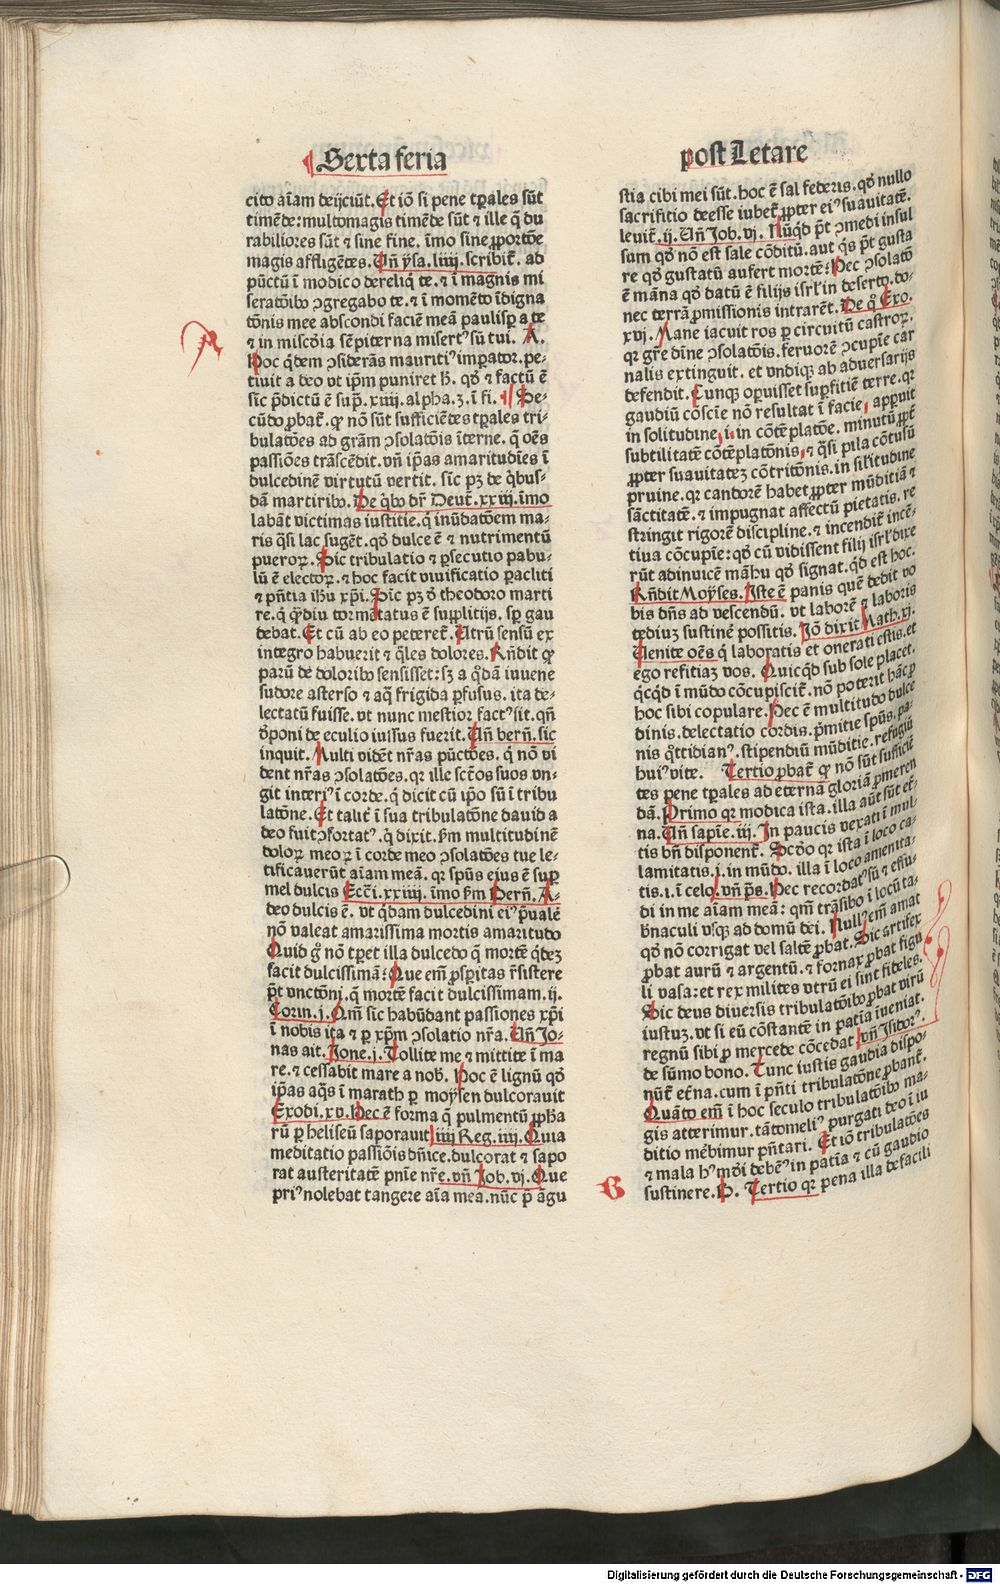 Sexta feria
cito aīam deijciūt. Et iō si pene tp̄ales sūt
timēde: multomagis timēde sūt ⁊ ille q̄ du
rabiliores sūt ⁊ sine fine. īmo sine ꝓportōe
magis affligētes. Vn̄ ysa. liiij. scribit̄. ad
pūctū ī modico dereliq̄ te. ⁊ ī magnis mi
seratōibꝰ ꝯgregabo te. ⁊ ī momēto īdigna
tōnis mee abscondi faciē meā paulisꝑ a te
⁊ in miscdia sēpiterna misertꝰ sū tui. A.
Hoc q̄dem ꝯsiderās mauritiꝰ imꝑator. pe-
tiuit a deo vt ip̄m puniret h̄. qđ ⁊ factū ē
sic p̄dictū ē sup̄. xiiij. alpha. ʒ. ī fi. Se-
cūdo ꝓbat̄. ꝙ nō sūt sufficiētes tp̄ales tri-
bulatōes ad gr̄am ꝯsolatōis īterne. q̄ oēs
passiōes trāscēdit. vn̄ ip̄as amaritudīes ī
dulcedinē virtutū vertit. sic pꝫ de q̄busـ
dā martiribꝰ. De q̄bꝰ dr̄ Deut̄. xxiij. īmo
labāt victimas iustitie. q̄ inūdatōem ma-
ris q̄si lac sugēt. qđ dulce ē ⁊ nutrimentū
pueroꝝ. Sic tribulatio ⁊ ꝑsecutio pabu-
lū ē electoꝝ. ⁊ hoc facit viuificatio ꝑacliti
⁊ p̄ntia ihū xp̄i. Sic pꝫ đ theodoro marti
re. q̄ q̄diu tormētatus ē suppliтijs. sꝑ gau
debat. Et cū ab eo peteret̄. Vtrū sensū ex
integro habuerit ⁊ q̄les dolores. Rn̄dit ꝙ
parū de doloribꝰ sensisset: sꝫ a q̄dā iuuene
sudore asterso ⁊ aq̄ frigida ꝑfusus. ita de-
lectatū fuisse. vt nunc mestior factꝰ sit. qn̄
đponi de eculio iussus fuerit. Vn̄ bern̄. sic
inquit. Multi vidēt nr̄as pūctōes. q̄ nō vi
dent nr̄as ꝯsolatōes. qꝛ ille sctōs suos vn-
git interiꝰ ī corde. q̄ dicit cū ip̄o sū ī tribu
latōne. Et talit̄ ī sua tribulatōne dauid a
deo fuit ꝯfortatꝰ. q̄ dixit. Sm̄ multitudinē
doloꝝ meoꝝ ī corde meo ꝯsolatōes tue le-
tificauerūt aīam meā. qꝛ spūs eius ē suꝑ
mel dulcis Ecc̄i. xxiiij. īmo sm̄ Bern̄. A-
deo dulcis ē. vt q̄dam dulcedini eiꝰ p̄uale
nō valeat amarissima mortis amaritudo
Quid gͦ nō tp̄et illa dulcedo q̄ mortē q̄deꝫ
facit dulcissimā: Que em̄ ꝓsꝑitas r̄sistere
p̄t vnctōni. q̄ mortē facit dulcissimam. ij.
Corin. j. Qm̄ sic habūdant passiones xp̄i
ī nobis ita ⁊ ꝑ xp̄m ꝯsolatio nr̄a. Vn̄ Jo-
nas ait. Jone. j. Tollite me ⁊ mittite ī ma
re. ⁊ cessabit mare a nob̄. Hoc ē lignū qđ
ip̄as aq̄s ī marath ꝑ moysen dulcorauit
Exodi. xv. Hec ē forma q̄ pulmentū ꝓpha
rū ꝑ heliseū saporauit iiij Reg. iiij. Quia
meditatio passiōis dn̄ice. dulcorat ⁊ sapo
rat austeritatē pn̄ie nr̄e. vn̄ Job. vj. Que
priꝰ nolebat tangere aīa mea. nūc p̄ āgu
post Letare
stia cibi mei sūt. hoc ē sal federis. qđ nullo
sacrifitio deesse iubet̄ ꝓpter eiꝰ suauitatē.
leuit̄. ij. Vn̄ Job. vj. Nūqd p̄t ꝯmedi insul
sum qđ nō est sale cōditū. aut q̄s p̄t gusta
re qđ gustatū aufert mortē: Hec ꝯsolatō
ē māna qđ datū ē filijs isrl' in deserto. do-
nec terrā ꝓmissionis intrarēt. De q̄ Exo.
xvj. Mane iacuit ros ꝑ circuitū castroꝝ.
qꝛ gr̄e dīne ꝯsolatōis. feruorē ꝯcupīe car
nalis extinguit. et vndiqꝫ ab aduersarijs
defendit. Cunqꝫ oꝑuisset suꝑfitiē terre. qꝛ
gaudiū cōscīe nō resultat ī facie, apꝑuit
in solitudine, i. in cōtēplatōe. minutū ꝓpt̄
subtilitatē cōtēplatōnis, ⁊ q̄si pila cōtusū
ꝓpter suauitateꝫ cōtritōnis. in sil'itudine
pruine. qꝛ candorē habet ꝓpter mūditiā ⁊
sāctitatē. ⁊ impugnat affectū pietatis. re
stringit rigorē discipline. ⁊ incendit̄ incē-
tiua cōcupīe: qđ cū vidissent filij isrl' dixe
rūt adinuicē māhu qđ signat. qđ est hoc.
Rn̄dit Moyses. Iste ē panis quē dedit vo
bis dn̄s ad vescendū. vt laborē ⁊ laboris
tediuꝫ sustinē possitis. Iō dixit Math. xj.
Venite oēs q̄ laboratis et onerati estis. et
ego refitiaꝫ vos. Quicqđ sub sole placet.
qcqđ ī mūdo cōcupiscit̄. nō poterit hāc ꝑ
hoc sibi copulare. Hec ē multitudo dulce
dinis. delectatio cordis. p̄mitie spūs. pa-
nis q̄ttidianꝰ. stipendiū mūditie. refugiū
huiꝰ vite. Tertio ꝓbat̄ ꝙ nō sūt sufficiē
tes pene tp̄ales ad eternā gloriā ꝓmeren
dā. Primo qꝛ modica ista. illa aūt sūt et̄-
na. Vn̄ sapīe. iij. In paucis vexati ī mul
tis bn̄ disponent̄. Scđo qꝛ ista ī loco ca-
lamitatis. i. in mūdo. illa ī loco amenita-
tis. i. ī celo. vn̄ ps̄. Hec recordatꝰ sū ⁊ effu-
di in me aīam meā: qm̄ trāsibo ī locū ta-
b̄naculi vsqꝫ ad domū dei. Nullꝰ em̄ amat
qđ nō corrigat vel saltē ꝓbat. Sic artifex
ꝓbat aurū ⁊ argentū. ⁊ fornax ꝓbat figu
li vasa: et rex milites vtrū ei sint fideles.
Sic deus diuersis tribulatōibꝰ ꝓbat virū
iustuꝫ. vt si eū cōstantē in patīa īueniat.
regnū sibi ꝓ mercede cōcedat vn̄ Isidorꝰ.
de sūmo bono. Tunc iustis gaudia dispo-
nūt̄ et̄na. cum ī p̄nti tribulatōne ꝓbant̄.
Quāto em̄ ī hoc seculo tribulatōibꝰ ma-
gis atterimur. tātomeliꝰ purgati deo ī iu
ditio mēbimur p̄ntari. Et iō tribulatōes
⁊ mala hꝰ mōi debēꝰ in patīa ⁊ cū gaudio
sustinere. B. Tertio qꝛ pena illa defacili
B
Digitalisierung gefördert durch die Deutsche Forschungsgemeinschaft - DFG